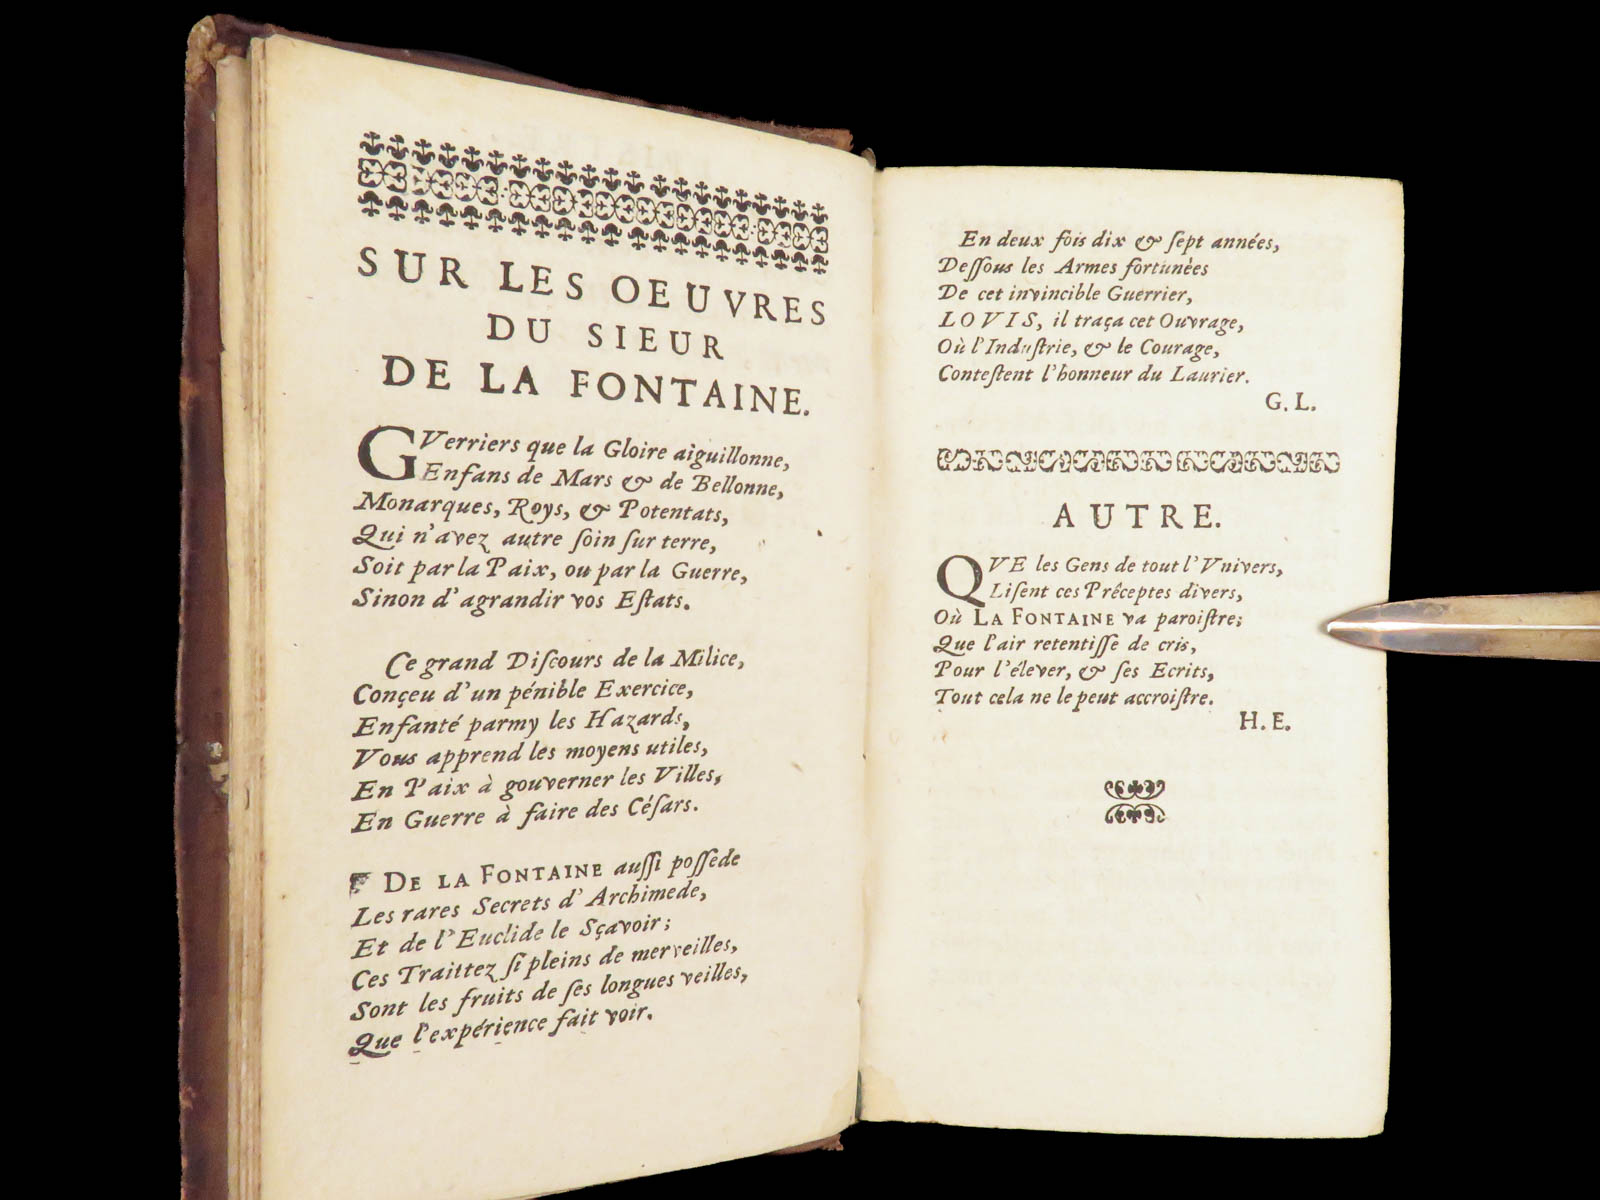 SUR LES OEUVRES
DU SIEUR
DE LA FONTAINE.
GVerriers que la Gloire aiguillonne,
Enfans de Mars & de Bellonne,
Monarques, Roys, & Potentats,
Qui n'avez autre ſoin ſur terre,
Soit par la Paix, ou par la Guerre,
Sinon d'agrandir vos Eſtats.
Ce grand Diſcours de la Milice,
Conçeu d'un pénible Exercice,
Enfanté parmy les Hazards,
Vous apprend les moyens utiles,
En Paix à gouverner les Villes,
En Guerre à faire des Céſars.
DE LA FONTAINE auſſi poſſede
Les rares Secrets d'Archimede,
Et de l'Euclide le Sçavoir;
Ces Traittez ſi pleins de merveilles,
Sont les fruits de ſes longues veilles,
Que l'expérience fait voir.
En deux fois dix & ſept années,
Deſſous les Armes fortunées
De cet invincible Guerrier,
LOVIS, il traça cet Ouvrage,
Où l'Induſtrie, & le Courage,
Conteſtent l'honneur du Laurier.
G. L.
AUTRE.
QVE les Gens de tout l'Vnivers,
Liſent ces Prêceptes divers,
Où LA FONTAINE va paroiſtre;
Que l'air retentiſſe de cris,
Pour l'élever, & ſes Ecrits,
Tout cela ne le peut accroiſtre.
H. E.